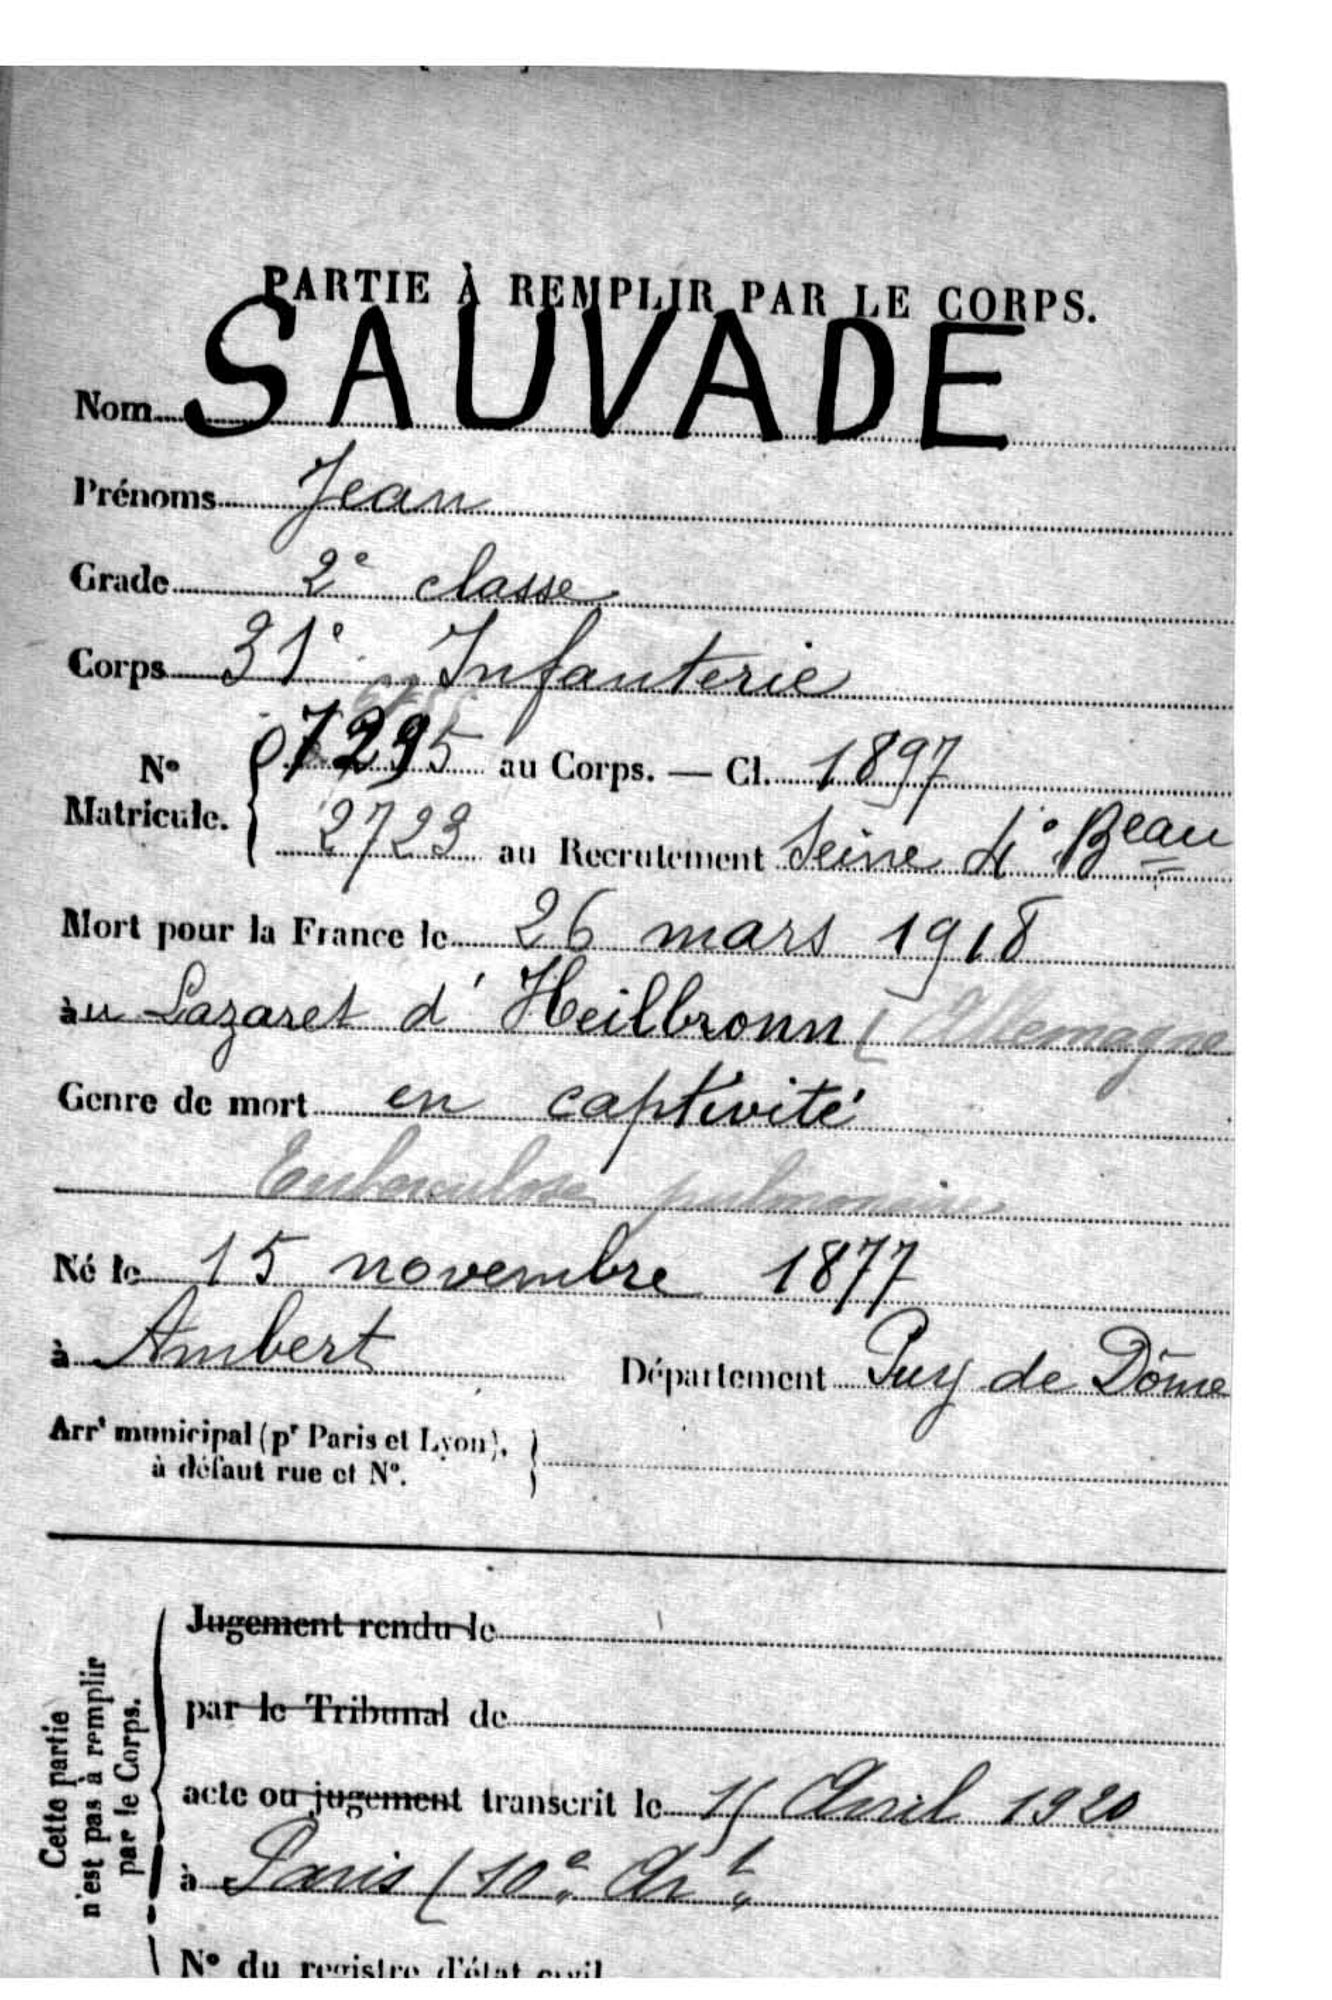 PARTIE À REMPLIR PAR LE CORPS.
Nom SAUVADE
Prénoms Jean
Grade 2e classe
Corps 31e Infanterie
No Matricule. { 07295 au Corps. — Cl. 1897
2723 au Recrutement Seine 4e Beau
Mort pour la France le 26 mars 1918
au Lazaret d'Heilbronn (Allemagne
Genre de mort en captivité
Tuberculose pulmonaire
Né le 15 novembre 1877
à Ambert Département Puy de Dôme
Arrt municipal (pr Paris et Lyon), à défaut rue et No. }
Cette partie n'est pas à remplir par le Corps.
Jugement rendu le
par le Tribunal de
acte ou jugement transcrit le 15 Avril 1920
à Paris (10e Art
No du registre d'état civil